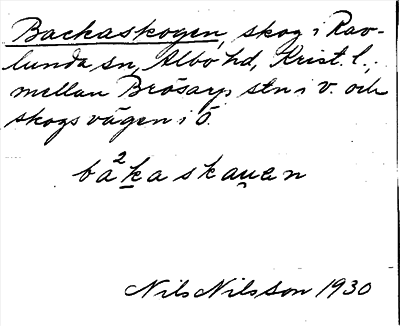 Backaskogen, skog i Rav-
lunda sn, Albo hd, Krist. l.,
mellan Brösarp stn i v. och
skogsvägen i ö.
ba²kaskauan
Nils Nilsson 1930